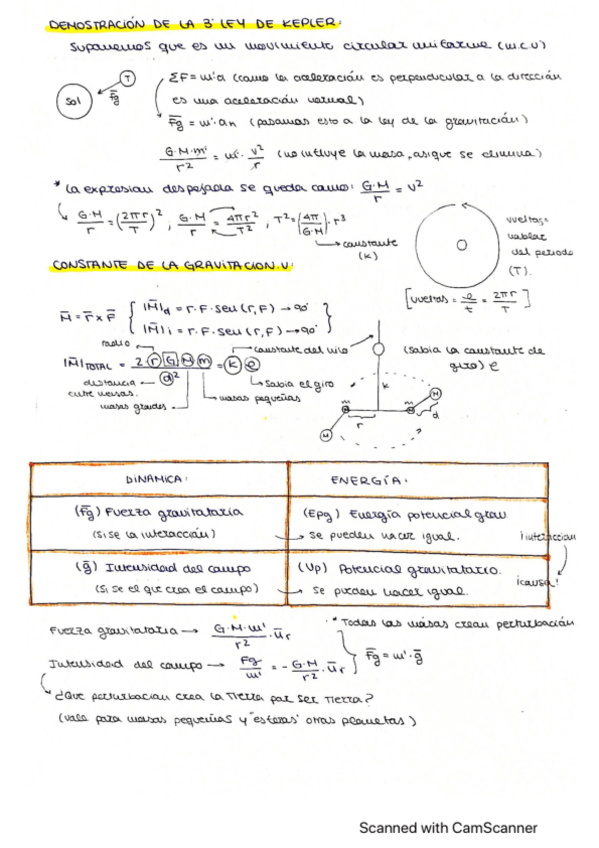 DEMOSTRACIÓN DE LA 3ª LEY DE KEPLER:
Suponemos que es un movimiento circular uniforme (m.c.u)
Sol
T
F̄g
ΣF = m'a (como la aceleración es perpendicular a la dirección
es una aceleración normal)
F̄g = m'·an (pasamos esto a la ley de la gravitación)
G·M·m'/r² = m'·v²/r (no influye la masa, asique se elimina)
* La expresión despejada se queda como: G·M/r = v²
G·M/r = (2πr/T)², G·M/r = 4πr²/T², T² = (4π/G·M)·r³
constante
(K)
vueltas =
hablar
del periodo
(T).
[vueltas = e/t = 2πr/T]
CONSTANTE DE LA GRAVITACION.U:
M̄ = r̄ x F̄ { |M̄|d = r·F·sen(r,F) → 90°
|M̄|i = r·F·sen(r,F) → 90°
radio
constante del hilo
(sabía la constante de
giro) e
|M̄|TOTAL = 2 r G M m / d² = K e
distancia
entre masas.
sabía el giro
masas pequeñas
masas grandes
K
m
m
M
M
r
d
DINÁMICA:
ENERGÍA:
(F̄g) Fuerza gravitatoria
(Si se la interacción)
(Epg) Energía potencial grav
se pueden hacer igual.
¡interacción
(ḡ) Intensidad del campo
(Si se el que crea el campo)
(Vp) Potencial gravitatorio.
se pueden hacer igual.
¡causa!
Fuerza gravitatoria → G·M·m'/r² · ūr
* Todas las masas crean perturbación
Intensidad del campo → Fg/m' = - G·M/r² · ūr
F̄g = m'·ḡ
¿Que perturbación crea la Tierra por ser Tierra?
(vale para masas pequeñas y "esferas" otros planetas)
Scanned with CamScanner